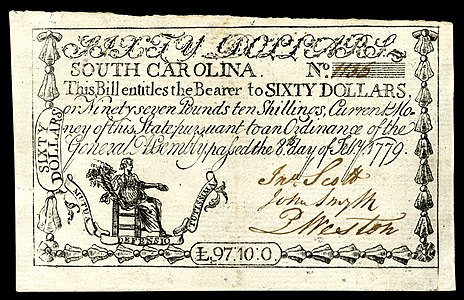 SIXTY DOLLARS
SOUTH CAROLINA. No.
This Bill entitles the Bearer to SIXTY DOLLARS.
or Ninety seven Pounds ten Shillings, Current Mo-
ney of this State pursuant to an Ordinance of the
General Assembly passed the 8th day of Feb.y 1779.
SIXTY DOLLARS
Jno. Scott
John Smyth
P Weston
MUTUA DEFENSIO TUTISSIMA
£.97.10:0.